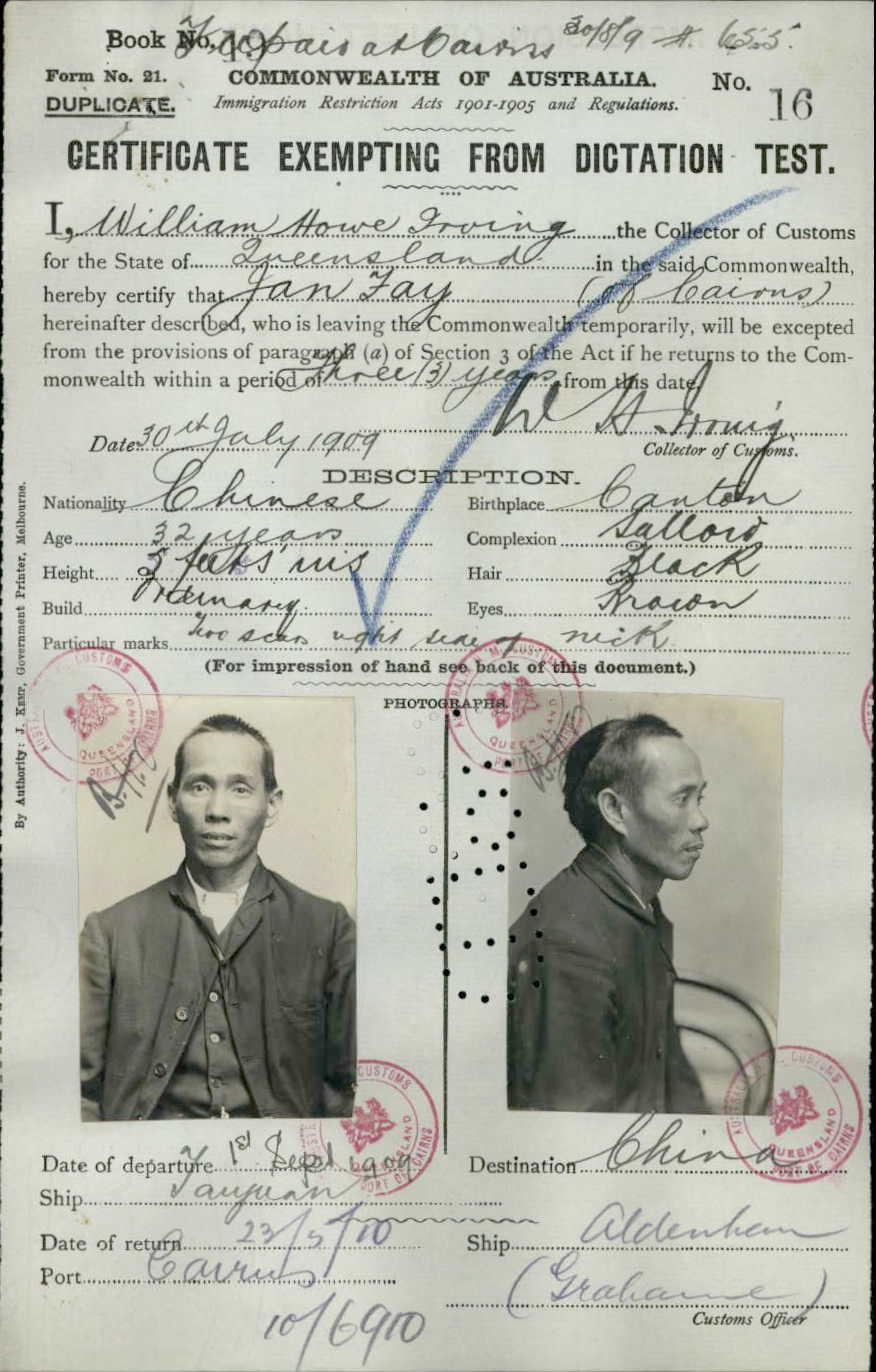 Book No. 19 paid at Cairns 30/8/9 # 655.
Form No. 21. COMMONWEALTH OF AUSTRALIA. No. 16
DUPLICATE. Immigration Restriction Acts 1901-1905 and Regulations.
CERTIFICATE EXEMPTING FROM DICTATION TEST.
I, William Howe Irving the Collector of Customs
for the State of Queensland in the said Commonwealth,
hereby certify that Jan Fay (of Cairns)
hereinafter described, who is leaving the Commonwealth temporarily, will be excepted
from the provisions of paragraph (a) of Section 3 of the Act if he returns to the Com-
monwealth within a period of Three (3) years from this date.
W H Irving
Date 30th July 1909 Collector of Customs.
DESCRIPTION.
Nationality Chinese Birthplace Canton
Age 32 years Complexion Sallow
Height 5 feet 5 ins Hair Black
Build Ordinary Eyes Brown
Particular marks Two scars right side of neck
(For impression of hand see back of this document.)
PHOTOGRAPHS.
By Authority: J. KEMP, Government Printer, Melbourne.
CUSTOMS QUEENSLAND PORT OF CAIRNS
CUSTOMS QUEENSLAND PORT
CUSTOMS QUEENSLAND PORT OF CAIRNS
CUSTOMS QUEENSLAND PORT OF CAIRNS
Date of departure 1st Sept 1909 Destination China
Ship Taiyuan
Date of return 23/5/10 Ship Aldenham
Port Cairns (Grahame)
Customs Officer
10/6910